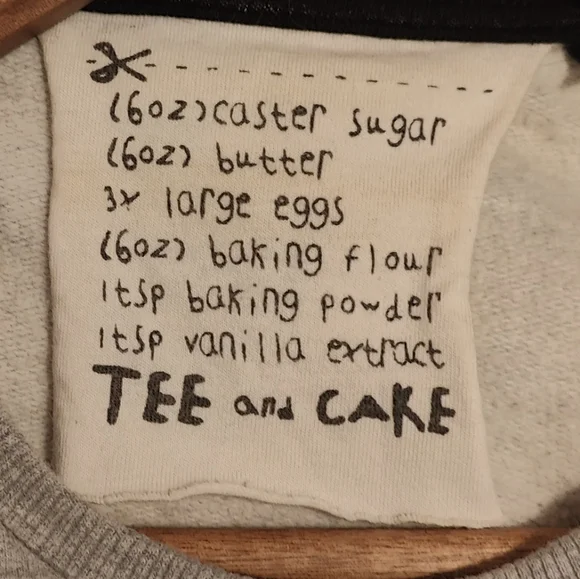 (6oz) caster sugar
(6oz) butter
3x large eggs
(6oz) baking flour
1tsp baking powder
1tsp vanilla extract
TEE and CAKE